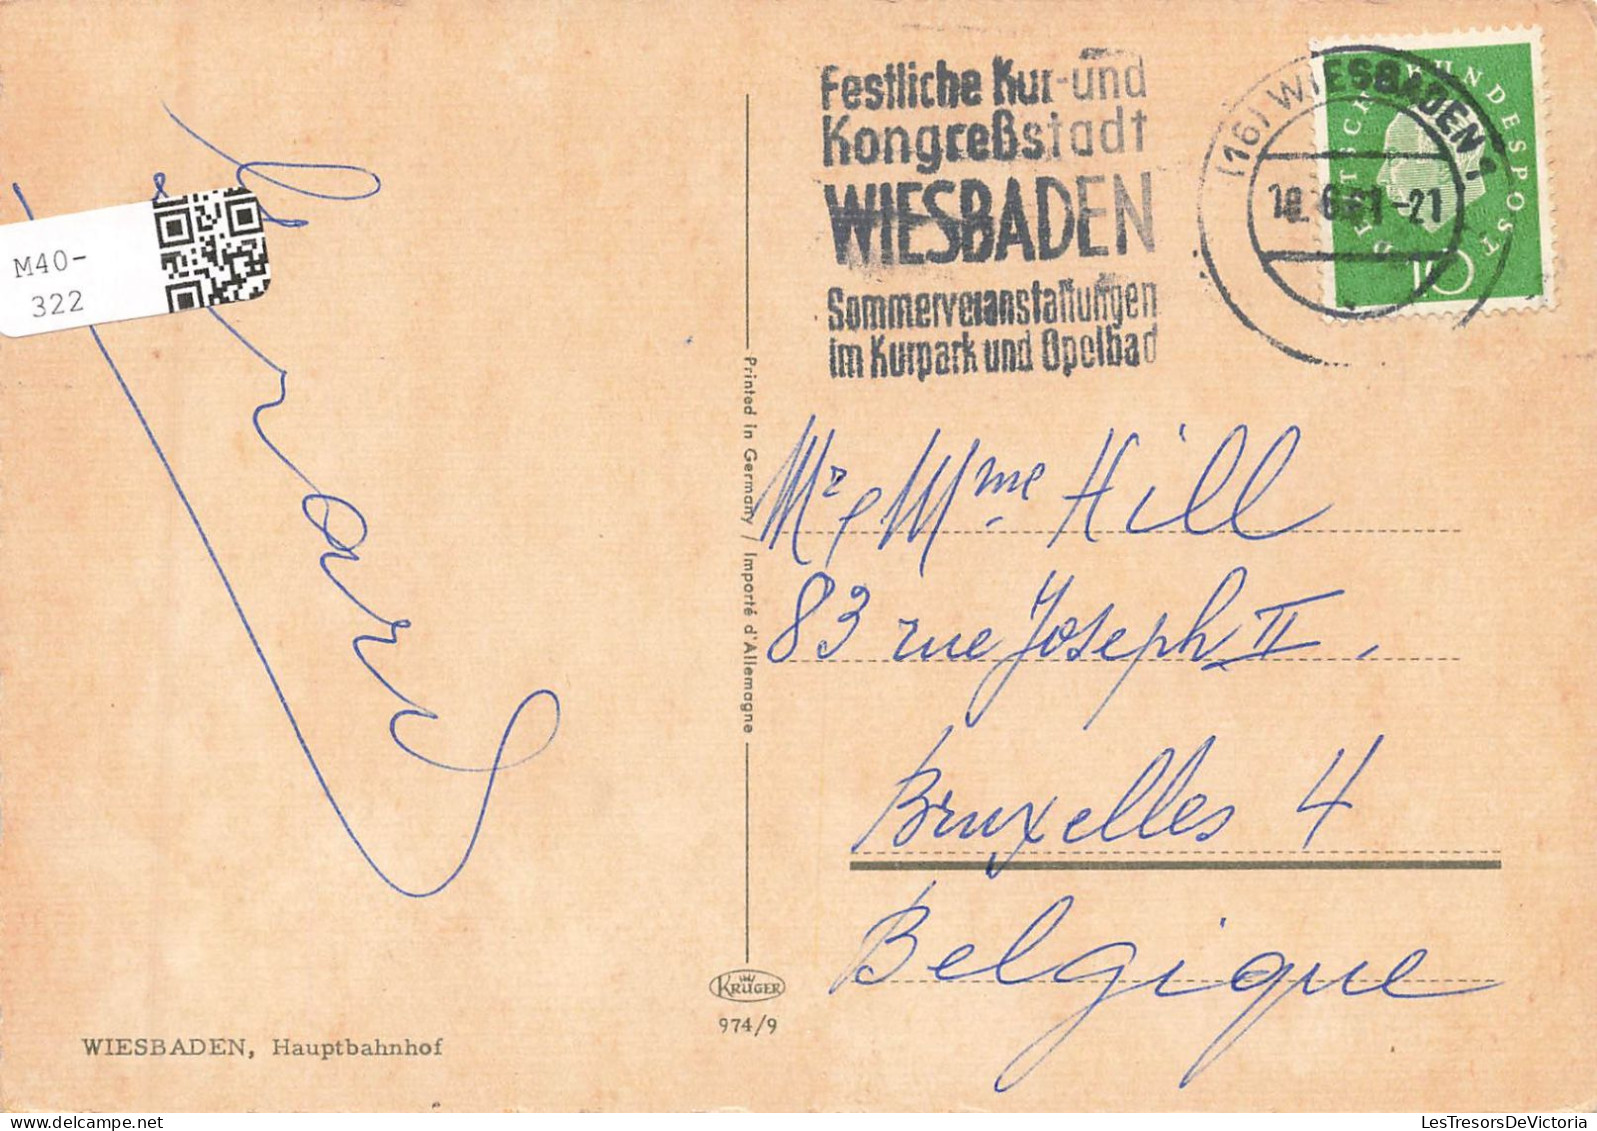 Festliche Kur-und
Kongreßstadt
WIESBADEN
Sommerveranstaltungen
im Kurpark und Opelbad
(16) WIESBADEN 1
-21
DEUTSCHE BUNDESPOST
10
M40-
322
Printed in Germany / Importé d'Allemagne
Mr e Mme Hill
83 rue Joseph II.
Bruxelles 4
Belgique
KRÜGER
974/9
WIESBADEN, Hauptbahnhof
LesTresorsDeVictoria.com